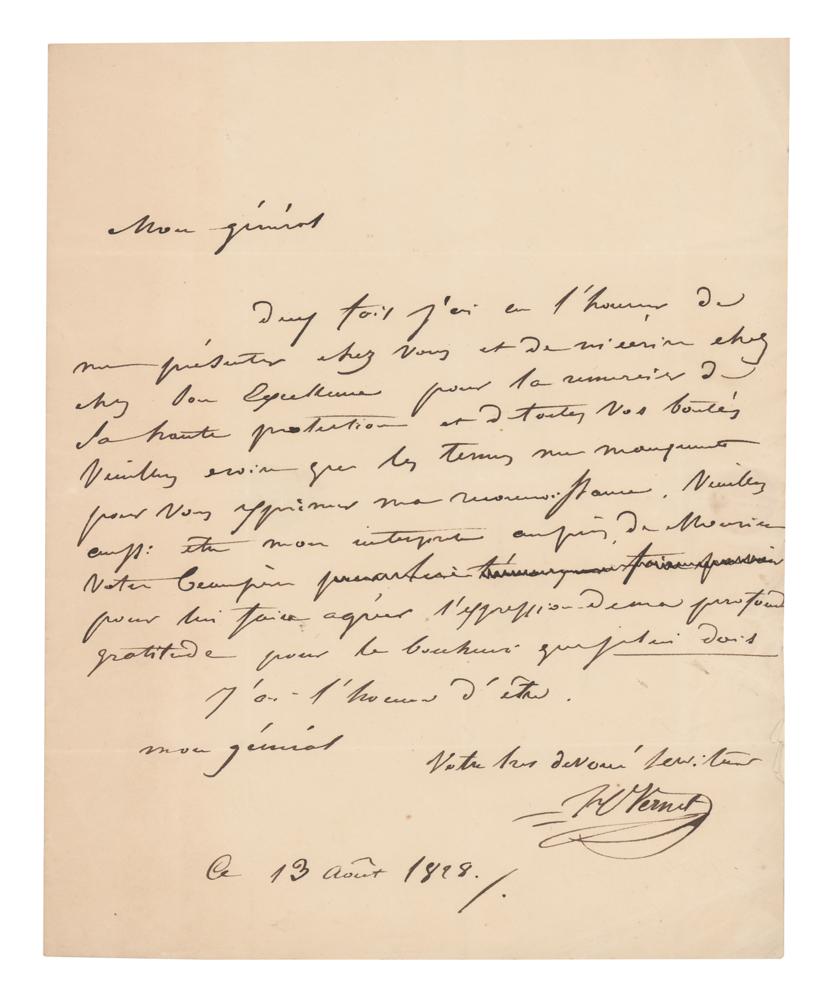 Mon général
deux fois j'ai eu l'honneur de
me présenter chez vous et de m'écrire chez
chez Son Excellence pour la remercier de
Sa haute protection et de toutes vos bontés
Veuillez croire que les termes me manquent
pour vous exprimer ma reconnoissance. Veuillez
aussi être mon interprète auprès de Monsieur
Votre beau père
pour lui faire agréer l'expression de ma profonde
gratitude pour le bonheur que je lui dois
J'ai l'honneur d'être.
mon général
Votre tres devoué Serviteur
H Vernet
Ce 13 Août 1828.